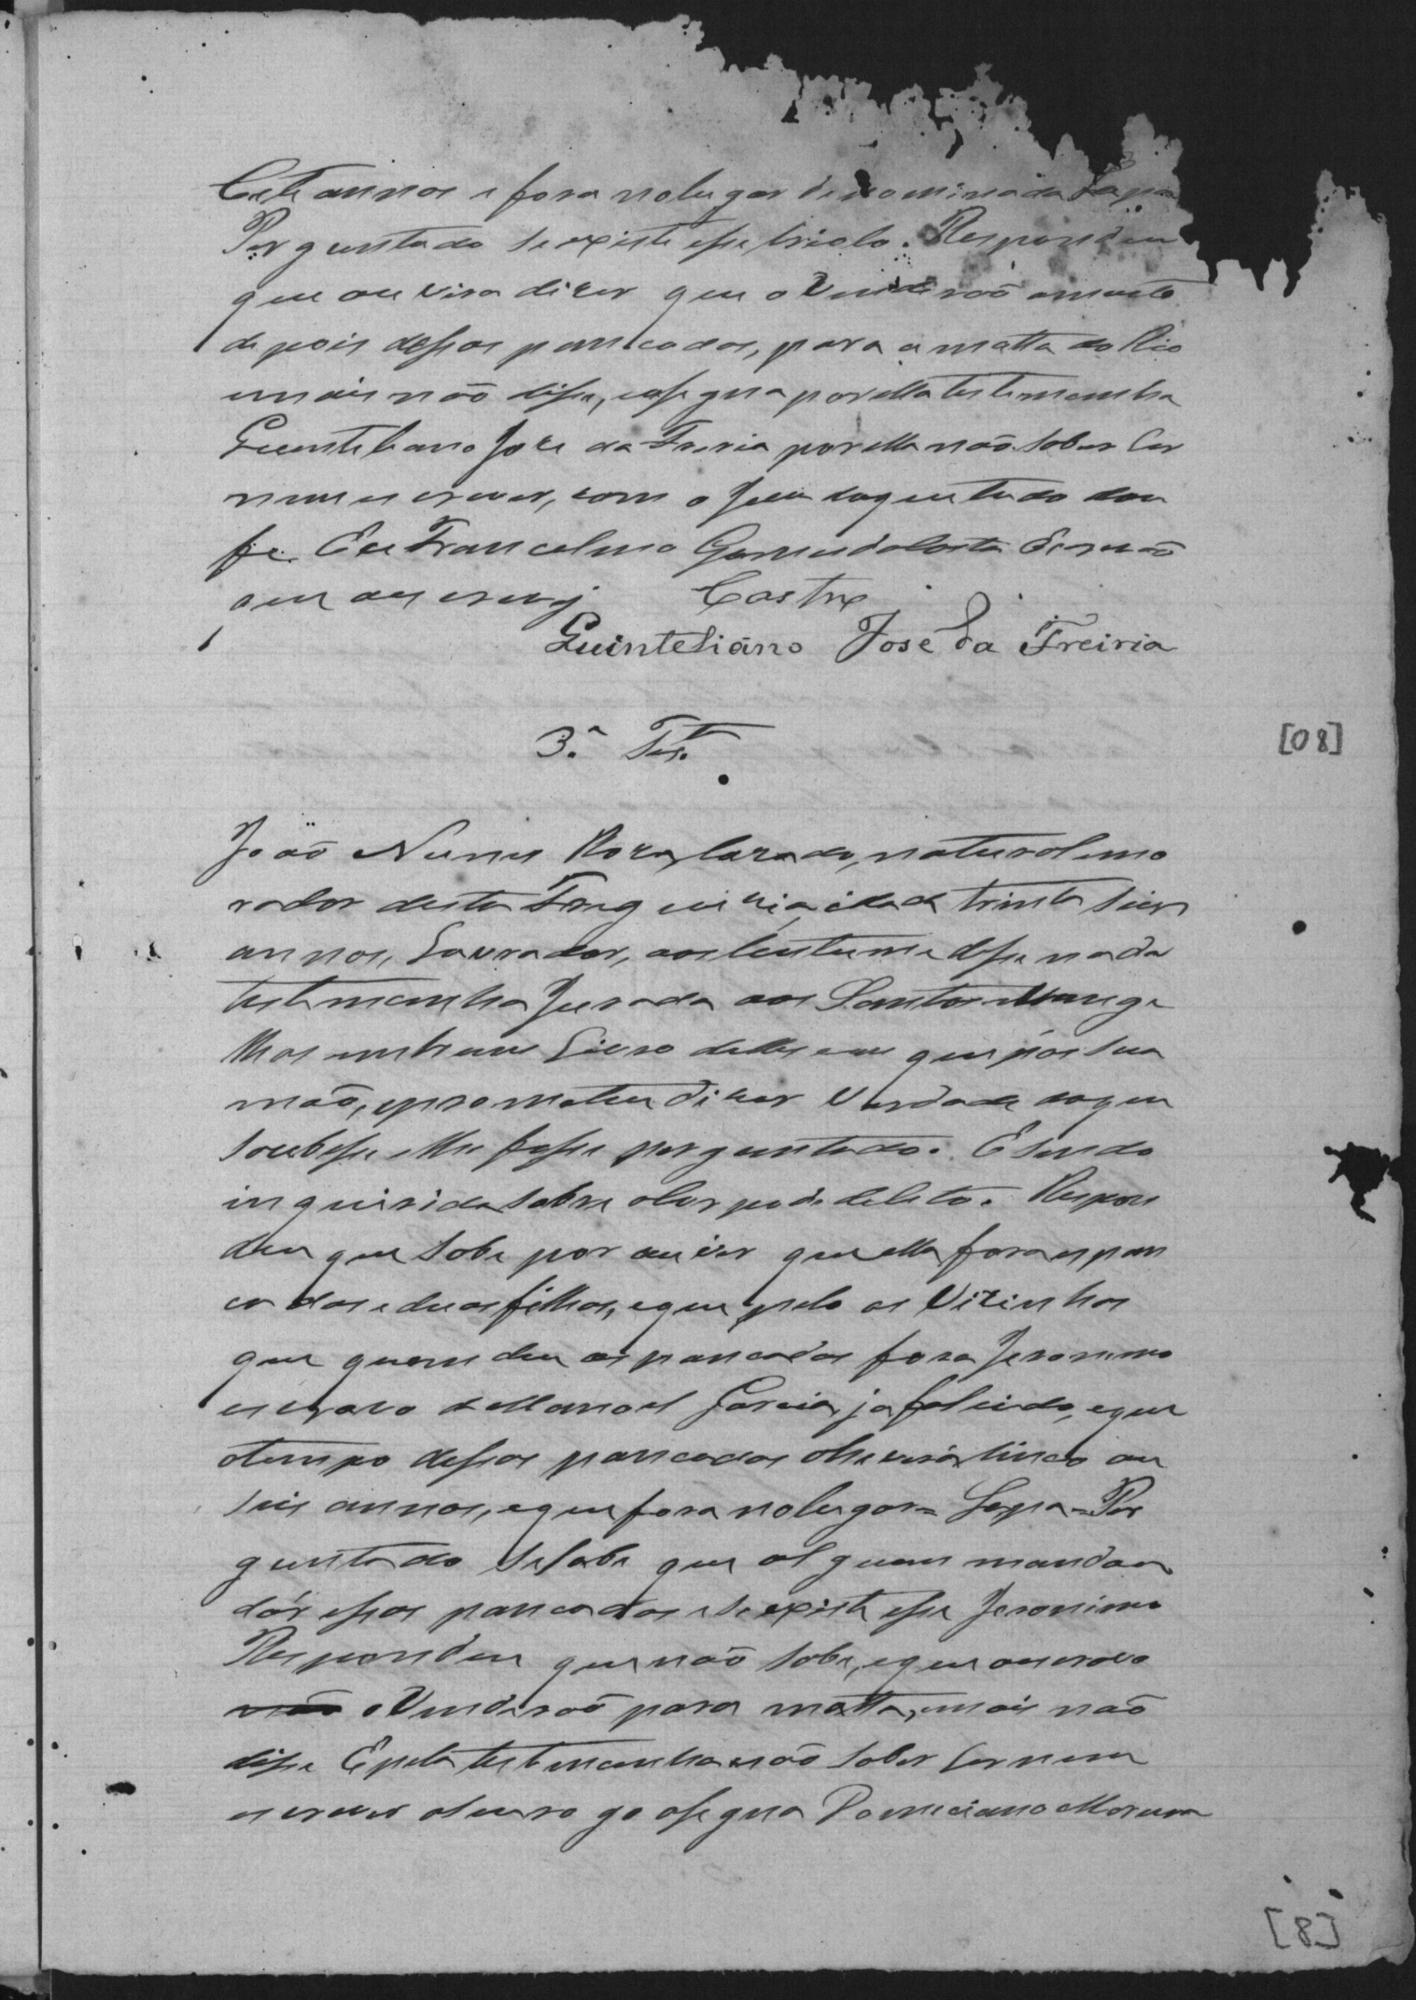 Cete annos e fora no lugar denominada Lapa
Perguntado se existe esse criolo. Respondeu
que ouvira dizer que o Venderaõ
depois dessas pancadas, para a matta do Rio
e mais naõ disse, e assigna por ella testemunha
Quinteliano Jose da Freiria por ella naõ saber ler
nem escrever, com o Juiz do que tudo dou
fe. Eu Francelino Gomes da Costa Escrivaõ
que escrevy Castro
Quinteliano Jose da Freiria
3.ª Tes.
[08]
Joaõ Nunes Roza, Cazado, natural e mo
rador desta Freguezia, idade trinta Seis
annos, Lavrador, aos Custumes disse nada
testemunha Jurada aos Santos Evange
lhos em hum Livro delles em que pós sua
maõ, e prometeu dizer Verdade do que
soubesse e lhe fosse perguntado. E sendo
inquirida sobre o Corpo de delito. Respon
deu que sabe por ouvir que ella fora espan
cada e duas filhas, e que pelo os Vizinhos
que quem deu as pancadas fora Jeronimo
escravo de Manoel Garcia, ja falecido, e que
o tempo dessas pancadas averá Cinco ou
seis annos, e que fora no lugar = Lapa = Per
guntado se sabe que alguem mandou
dár essas pancadas e se existe esse Jeronimo
Respondeu que naõ sabe, e que o escravo
naõ o Venderaõ para matta, e mais naõ
disse E pela testemunha naõ saber ler nem
escrever a seu rogo assigna Domiciano Moreira
[8]